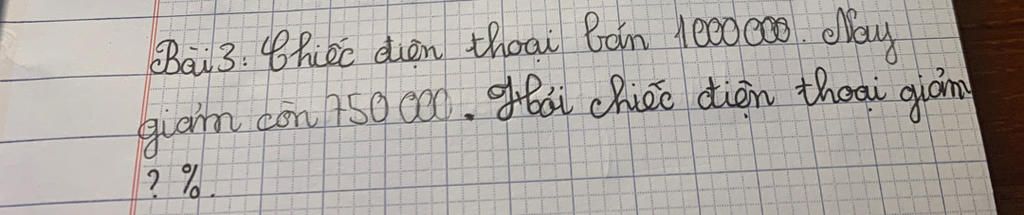 Bài 3: Chiếc điện thoại bán 1000000. Nay
giảm còn 750 000. Hỏi chiếc điện thoại giảm
? %.